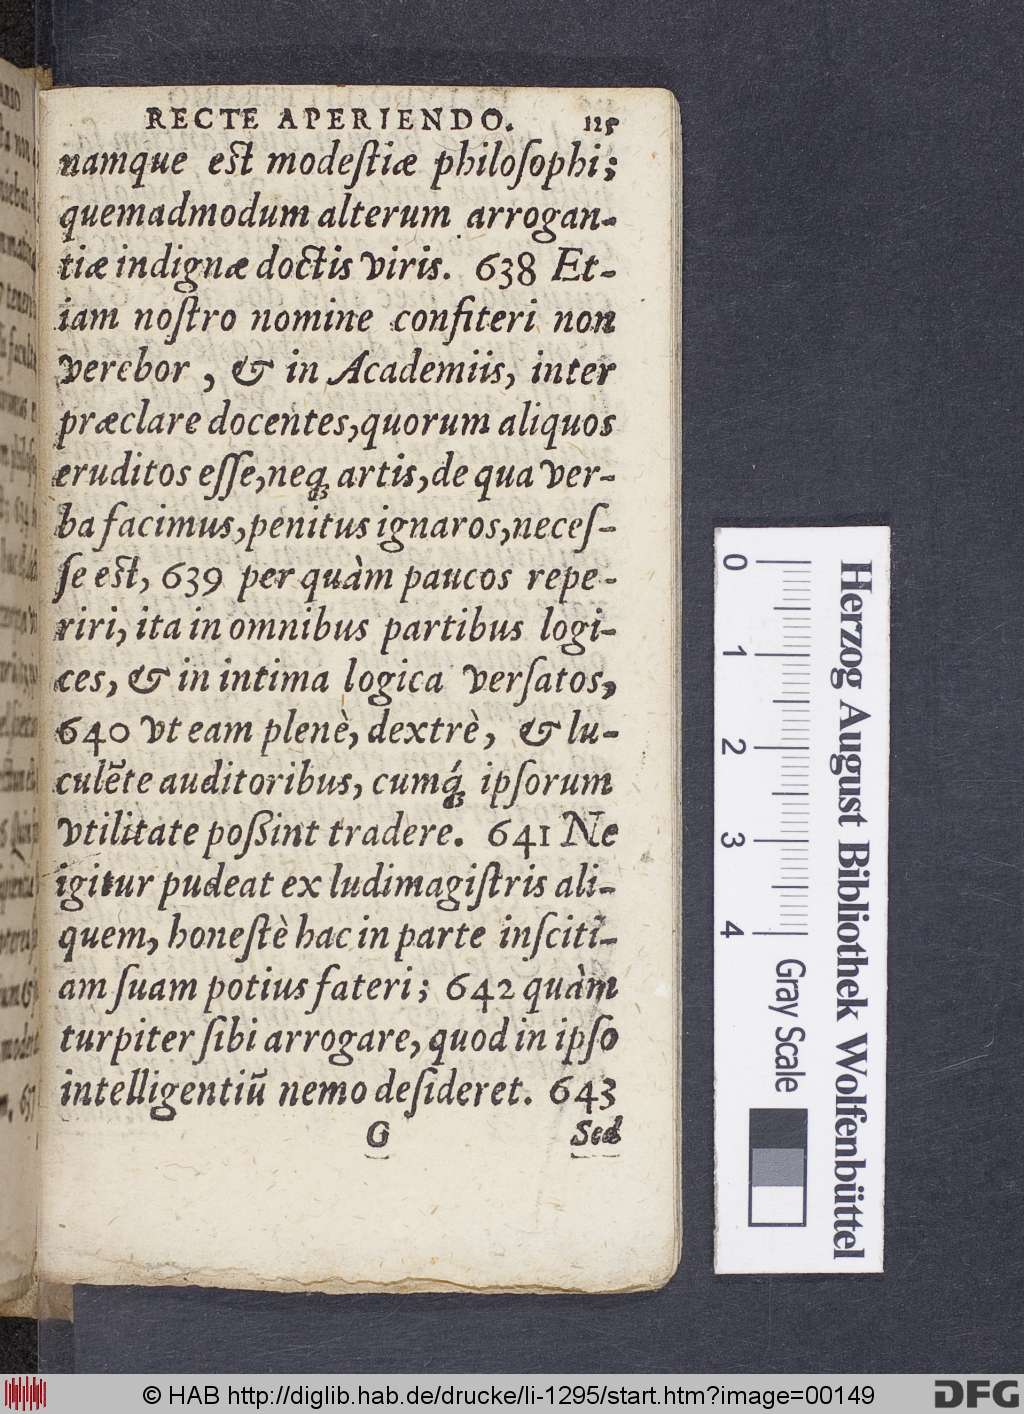 RECTE APERIENDO. 125
namque est modeſtiæ philoſophi;
quemadmodum alterum arrogan-
tiæ indignæ doctis viris. 638 Et-
iam noſtro nomine confiteri non
verebor, & in Academiis, inter
præclare docentes, quorum aliquos
eruditos eſſe, neq; artis, de qua ver-
ba facimus, penitus ignaros, neceſ-
ſe est, 639 per quàm paucos repe-
riri, ita in omnibus partibus logi-
ces, & in intima logica verſatos,
640 vt eam plenè, dextrè, & lu-
culẽte auditoribus, cumq́; ipſorum
vtilitate poßint tradere. 641 Ne
igitur pudeat ex ludimagiſtris ali-
quem, honeſtè hac in parte inſciti-
am ſuam potius fateri; 642 quàm
turpiter ſibi arrogare, quod in ipſo
intelligentiũ nemo deſideret. 643
G Sed
0 1 2 3 4 Gray Scale
Herzog August Bibliothek Wolfenbüttel
© HAB http://diglib.hab.de/drucke/li-1295/start.htm?image=00149
DFG